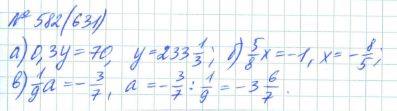 № 582(631)
а) 0,3y = 70, y = 233 1/3; б) 5/8 x = -1, x = -8/5;
в) 1/9 a = -3/7, a = -3/7 : 1/9 = -3 6/7.